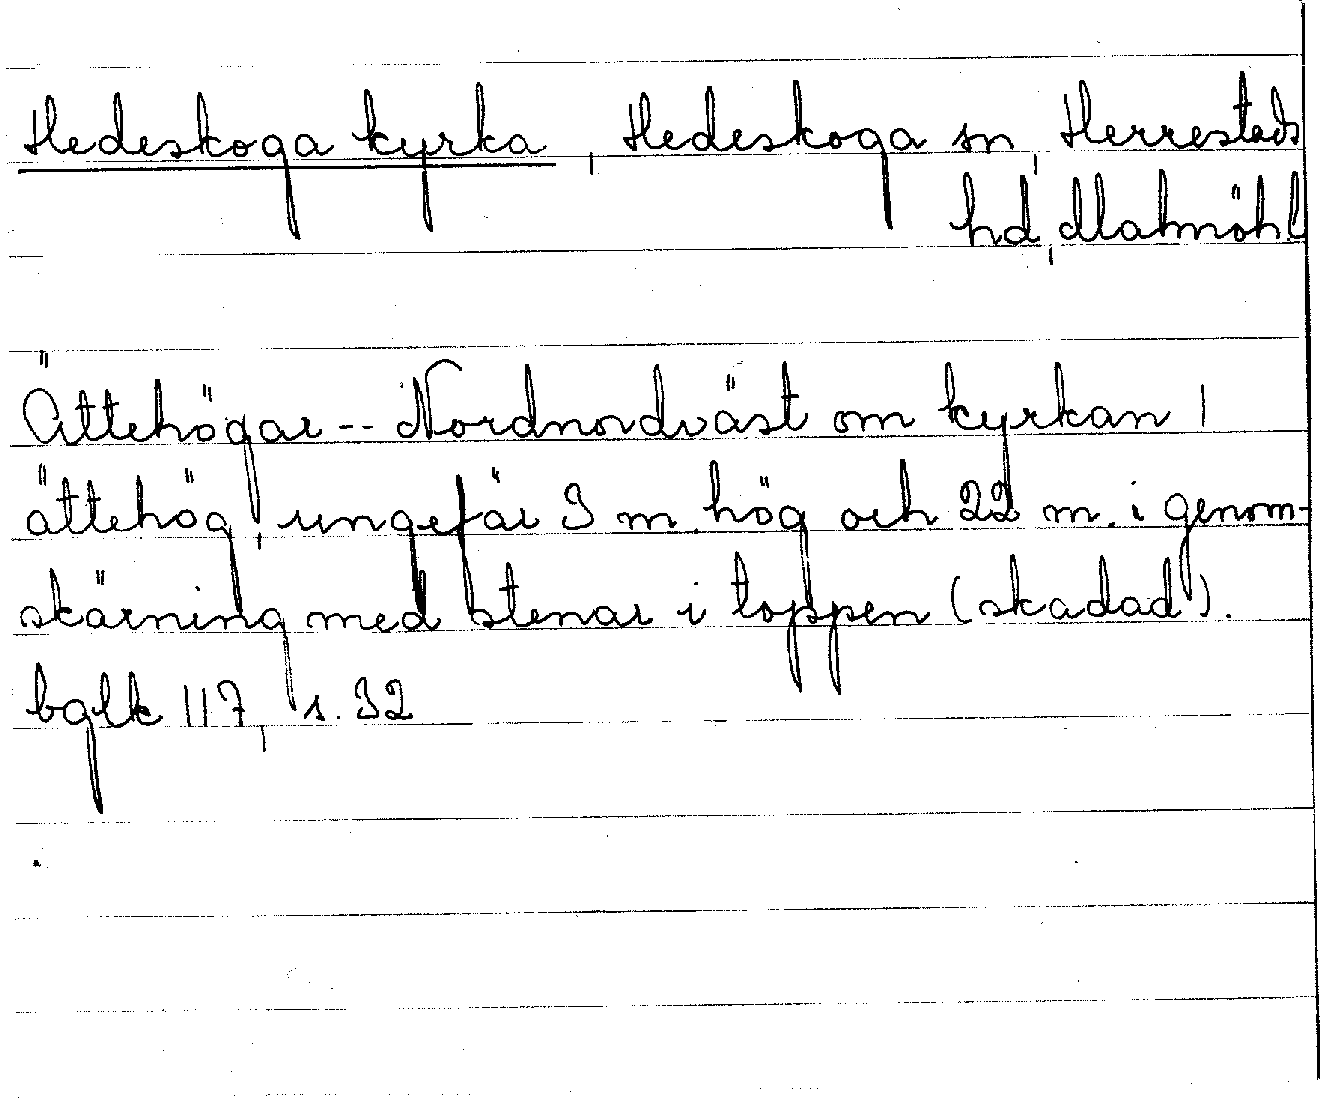 Hedeskoga kyrka, Hedeskoga sn, Herrestads
hd, Malmöhl
Ättehögar -- Nordnordväst om kyrkan 1
ättehög, ungefär 3 m. hög och 22 m. i genom-
skärning med stenar i toppen (skadad).
bglk 117, s. 32